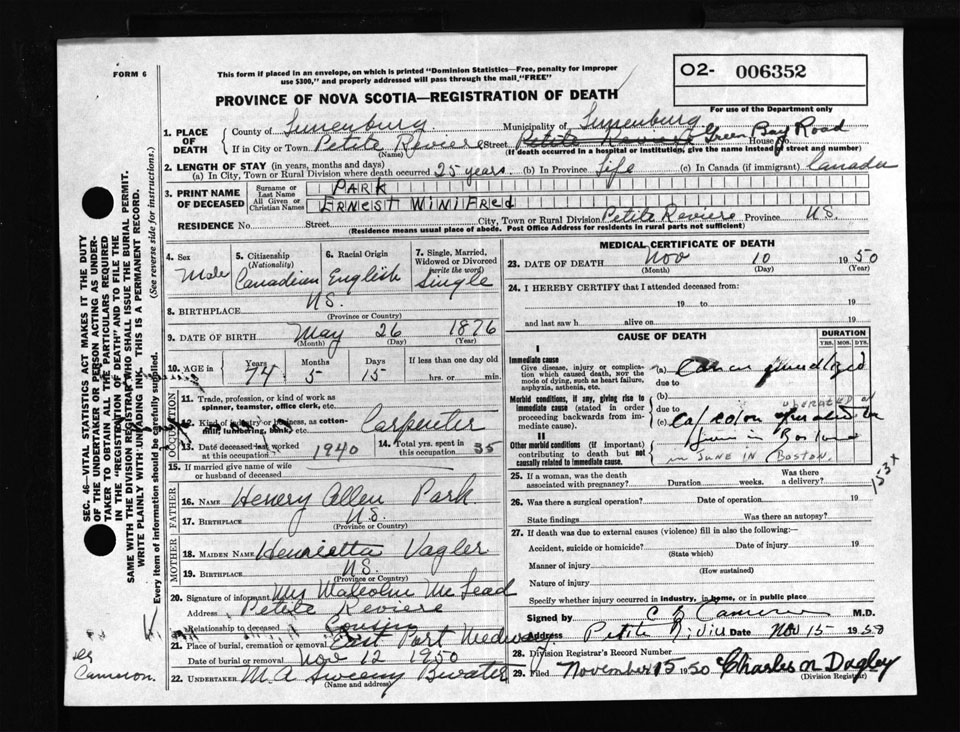 FORM 6
This form if placed in an envelope, on which is printed "Dominion Statistics—Free, penalty for improper
use $300," and properly addressed will pass through the mail "FREE"
O2- 006352
For use of the Department only
PROVINCE OF NOVA SCOTIA—REGISTRATION OF DEATH
1. PLACE OF DEATH
County of Lunenburg Municipality of Lunenburg
If in City or Town Petite Reviere (Name) Street Petite Reviere Green Bay Road House No.
(If death occurred in a hospital or institution, give the name instead of street and number)
2. LENGTH OF STAY (in years, months and days)
(a) In City, Town or Rural Division where death occurred 25 years. (b) In Province Life (c) In Canada (if immigrant) Canada
3. PRINT NAME OF DECEASED
Surname or Last Name PARK
All Given or Christian Names ERNEST WINIFRED
RESIDENCE No. Street City, Town or Rural Division Petite Reviere Province NS.
(Residence means usual place of abode. Post Office Address for residents in rural parts not sufficient)
4. Sex Male
5. Citizenship (Nationality) Canadian
6. Racial Origin English
7. Single, Married, Widowed or Divorced (write the word) Single
8. BIRTHPLACE NS. (Province or Country)
9. DATE OF BIRTH May 26 1876
(Month) (Day) (Year)
10. AGE in Years 74 Months 5 Days 15 If less than one day old hrs. or min.
OCCUPATION
11. Trade, profession, or kind of work as spinner, teamster, office clerk, etc.
12. Kind of industry or business, as cotton-mill, lumbering, bank, etc. Carpenter
13. Date deceased last worked at this occupation 1940
14. Total yrs. spent in this occupation 35
15. If married give name of wife or husband of deceased
FATHER
16. Name Henery Allen Park
17. Birthplace NS. (Province or Country)
MOTHER
18. Maiden Name Henrietta Vagler
19. Birthplace NS. (Province or Country)
20. Signature of informant Mrs Malcolm McLead
Address Petite Reviere
Relationship to deceased Cousin
21. Place of burial, cremation or removal East Port Medway
Date of burial or removal Nov 12 1950
22. UNDERTAKER M. A Sweeny Bwater
(Name and address)
MEDICAL CERTIFICATE OF DEATH
23. DATE OF DEATH Nov 10 1950
(Month) (Day) (Year)
24. I HEREBY CERTIFY that I attended deceased from:
19 to 19
and last saw h alive on 19
CAUSE OF DEATH
DURATION
YRS. MOS. DYS.
I
Immediate cause
Give disease, injury or complication which caused death, not the mode of dying, such as heart failure, asphyxia, asthenia, etc.
(a) Cancer
due to
Morbid conditions, if any, giving rise to immediate cause (stated in order proceeding backwards from immediate cause).
(b)
due to
OPERATED ON
(c) Ca of colon operated on
June in Boston
II
Other morbid conditions (if important) contributing to death but not causally related to immediate cause.
in JUNE IN BOSTON.
153x
25. If a woman, was the death associated with pregnancy? Duration weeks. Was there a delivery?
26. Was there a surgical operation? Date of operation 19
State findings Was there an autopsy?
27. If death was due to external causes (violence) fill in also the following:—
Accident, suicide or homicide? (State which) Date of injury 19
Manner of injury (How sustained)
Nature of injury
Specify whether injury occurred in industry, in home, or in public place
Signed by C B Cameron M.D.
Address Petite Riviere Date Nov 15 1950
28. Division Registrar's Record Number
29. Filed November 15 1950 Charles M Dagley
(Division Registrar)
SEC. 46—VITAL STATISTICS ACT MAKES IT THE DUTY
OF THE UNDERTAKER OR PERSON ACTING AS UNDERTAKER TO OBTAIN ALL THE PARTICULARS REQUIRED
IN THE "REGISTRATION OF DEATH" AND TO FILE THE
SAME WITH THE DIVISION REGISTRAR WHO SHALL ISSUE THE BURIAL PERMIT.
WRITE PLAINLY WITH UNFADING INK. THIS IS A PERMANENT RECORD.
Every item of information should be carefully supplied. (See reverse side for instructions.)
Cameron.